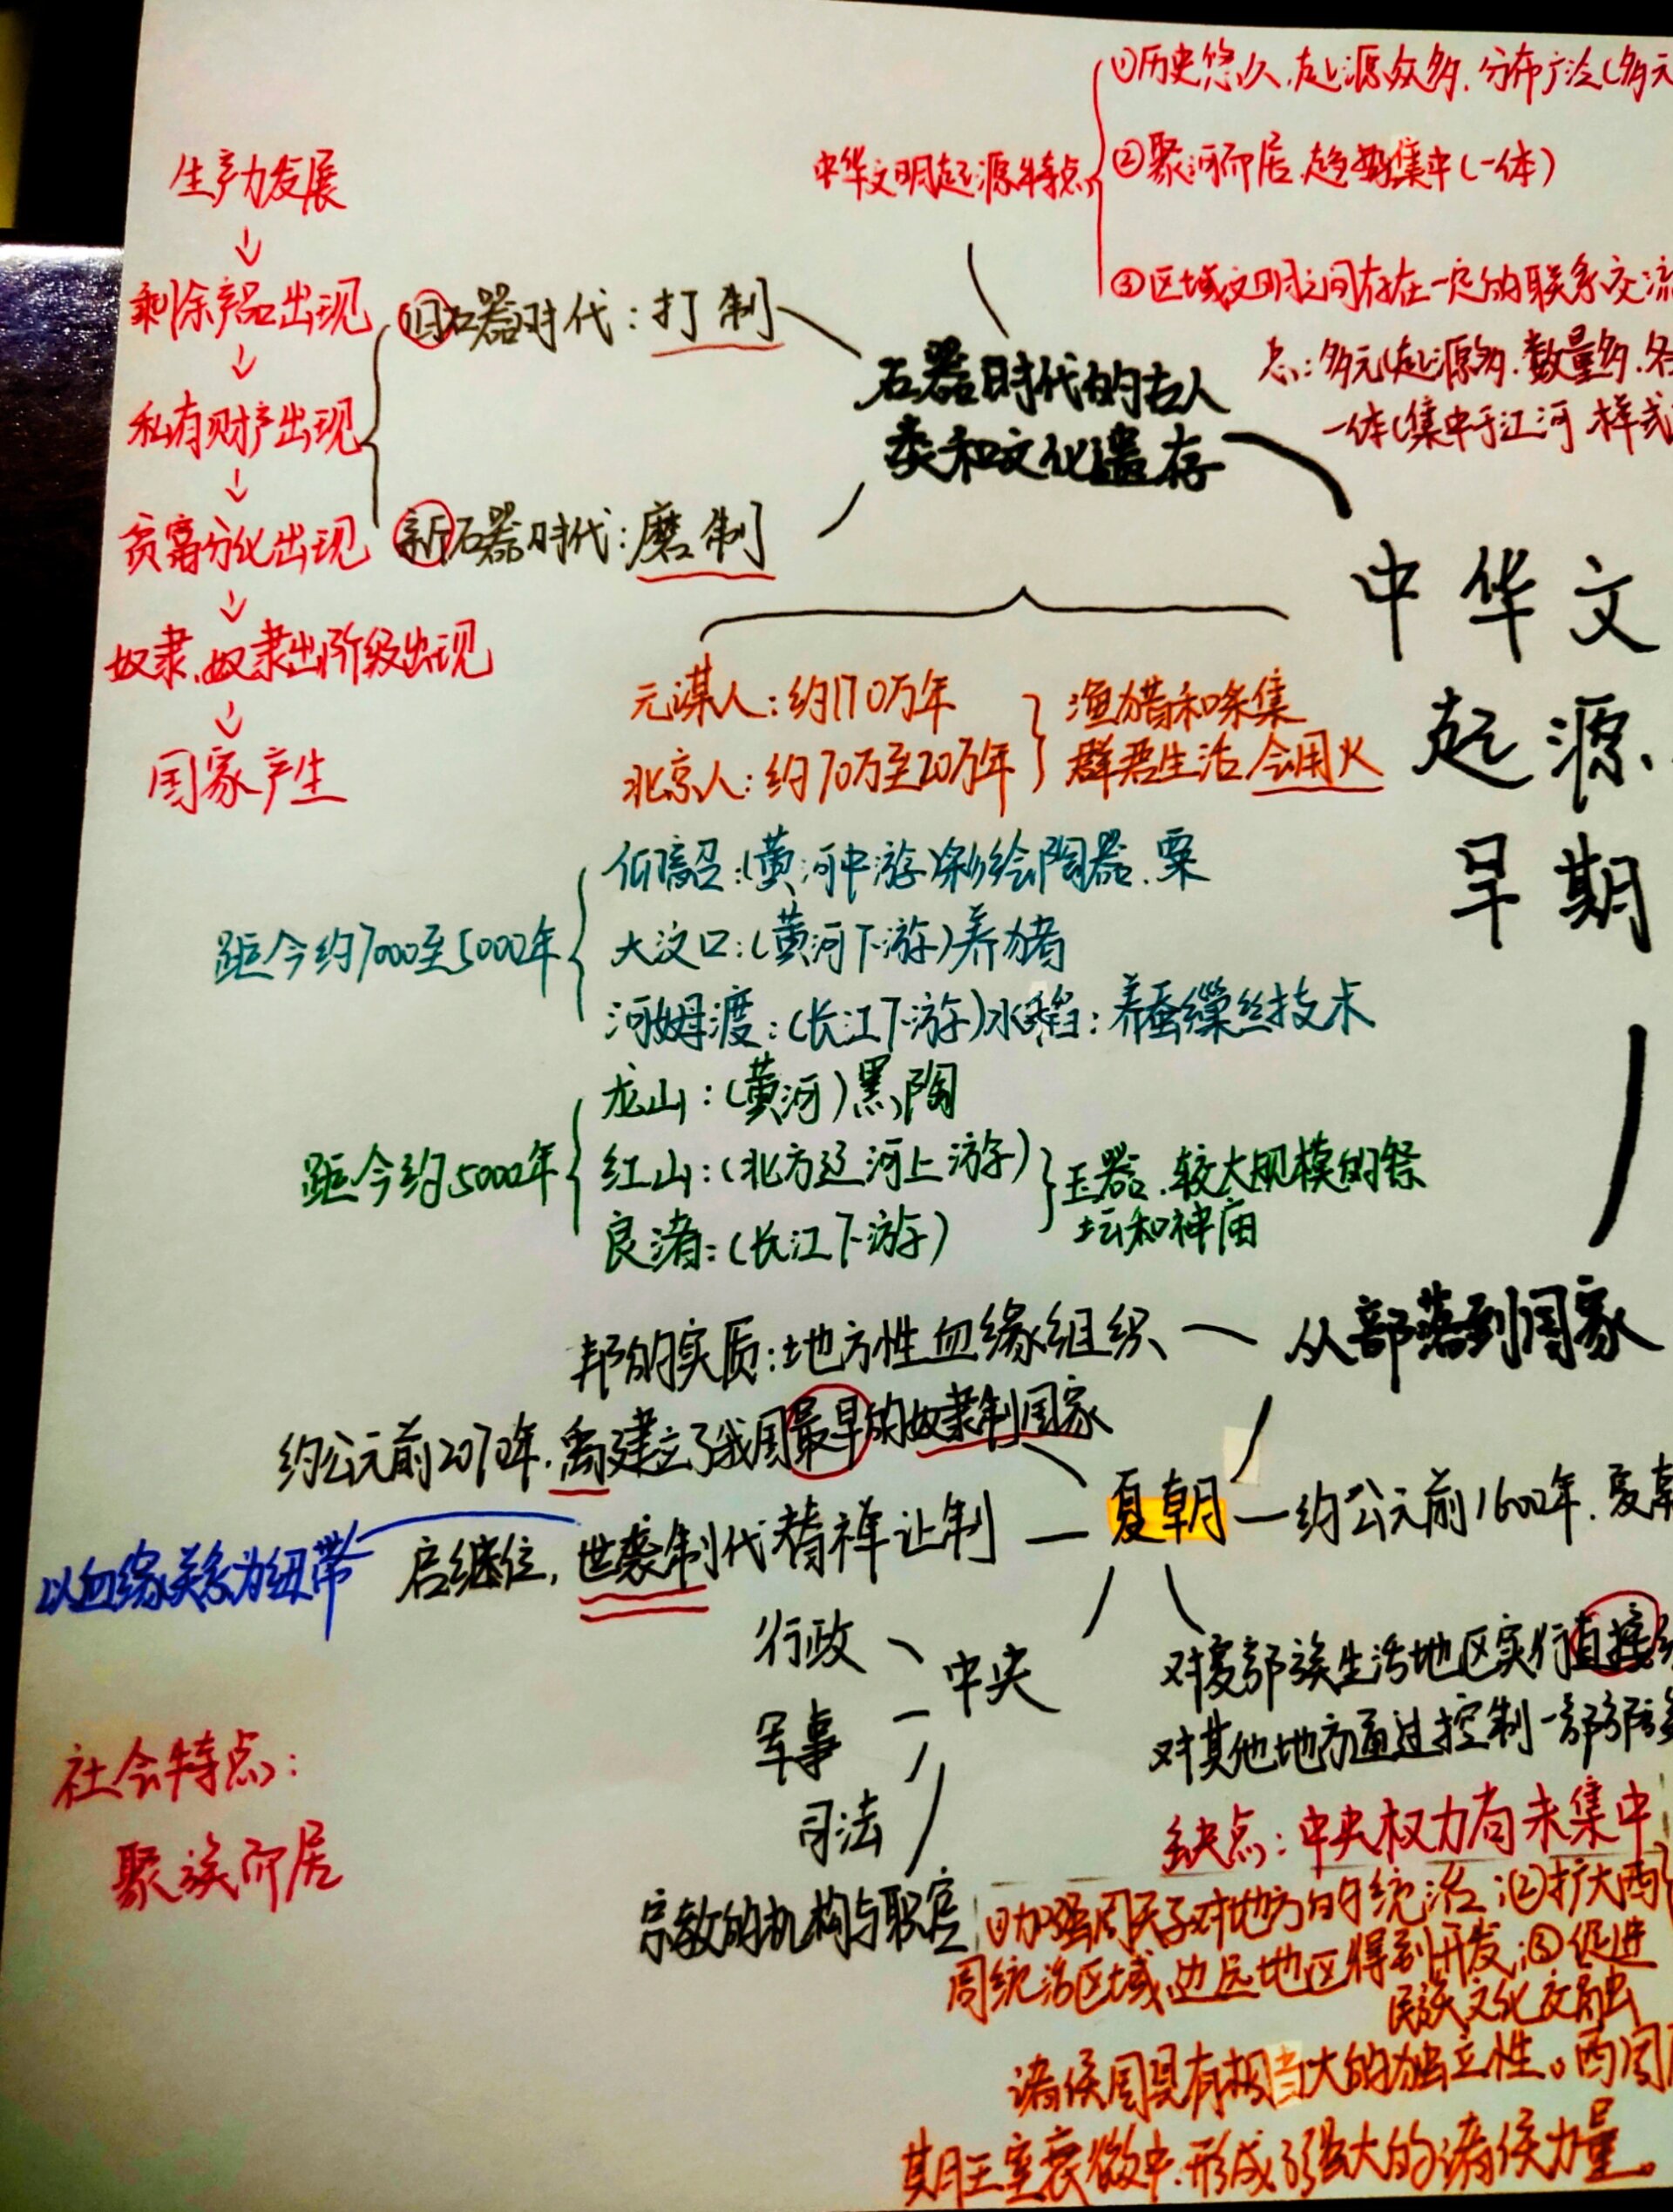 ①历史悠久,起源众多,分布广泛(多元
中华文明起源特点
②聚河而居,趋势集中(一体)
③区域文明之间存在一定的联系交流
点:多元(起源多.数量多.
一体(集中于江河.样式
生产力发展
剩余产品出现
私有财产出现
贫富分化出现
奴隶.奴隶主阶级出现
国家产生
旧石器时代:打制
新石器时代:磨制
石器时代的古人
类和文化遗存
中华文
起源、
早期
元谋人:约170万年
北京人:约70万至20万年
渔猎和采集
群居生活 会用火
距今约7000至5000年
仰韶:(黄河中游)彩绘陶器.粟
大汶口:(黄河下游)养猪
河姆渡:(长江下游)水稻:养蚕缫丝技术
距今约5000年
龙山:(黄河)黑陶
红山:(北方辽河上游)
良渚:(长江下游)
玉器.较大规模的祭
坛和神庙
邦的实质:地方性血缘组织
从部落到国家
约公元前2070年.禹建立了我国最早的奴隶制国家
以血缘关系为纽带
启继位,世袭制代替禅让制
夏朝
约公元前1600年.夏
行政
军事
司法
宗教的机构与职官
中央
对夏部族生活地区实行直接
对其他地方通过控制一部部
缺点:中央权力尚未集中
社会特点:
聚族而居
①加强周天子对地方的统治;②扩大西
周统治区域.边远地区得到开发;③促进
民族文化交融
诸侯国具有相当大的独立性。西周
期王室衰微中.形成了强大的诸侯力量。